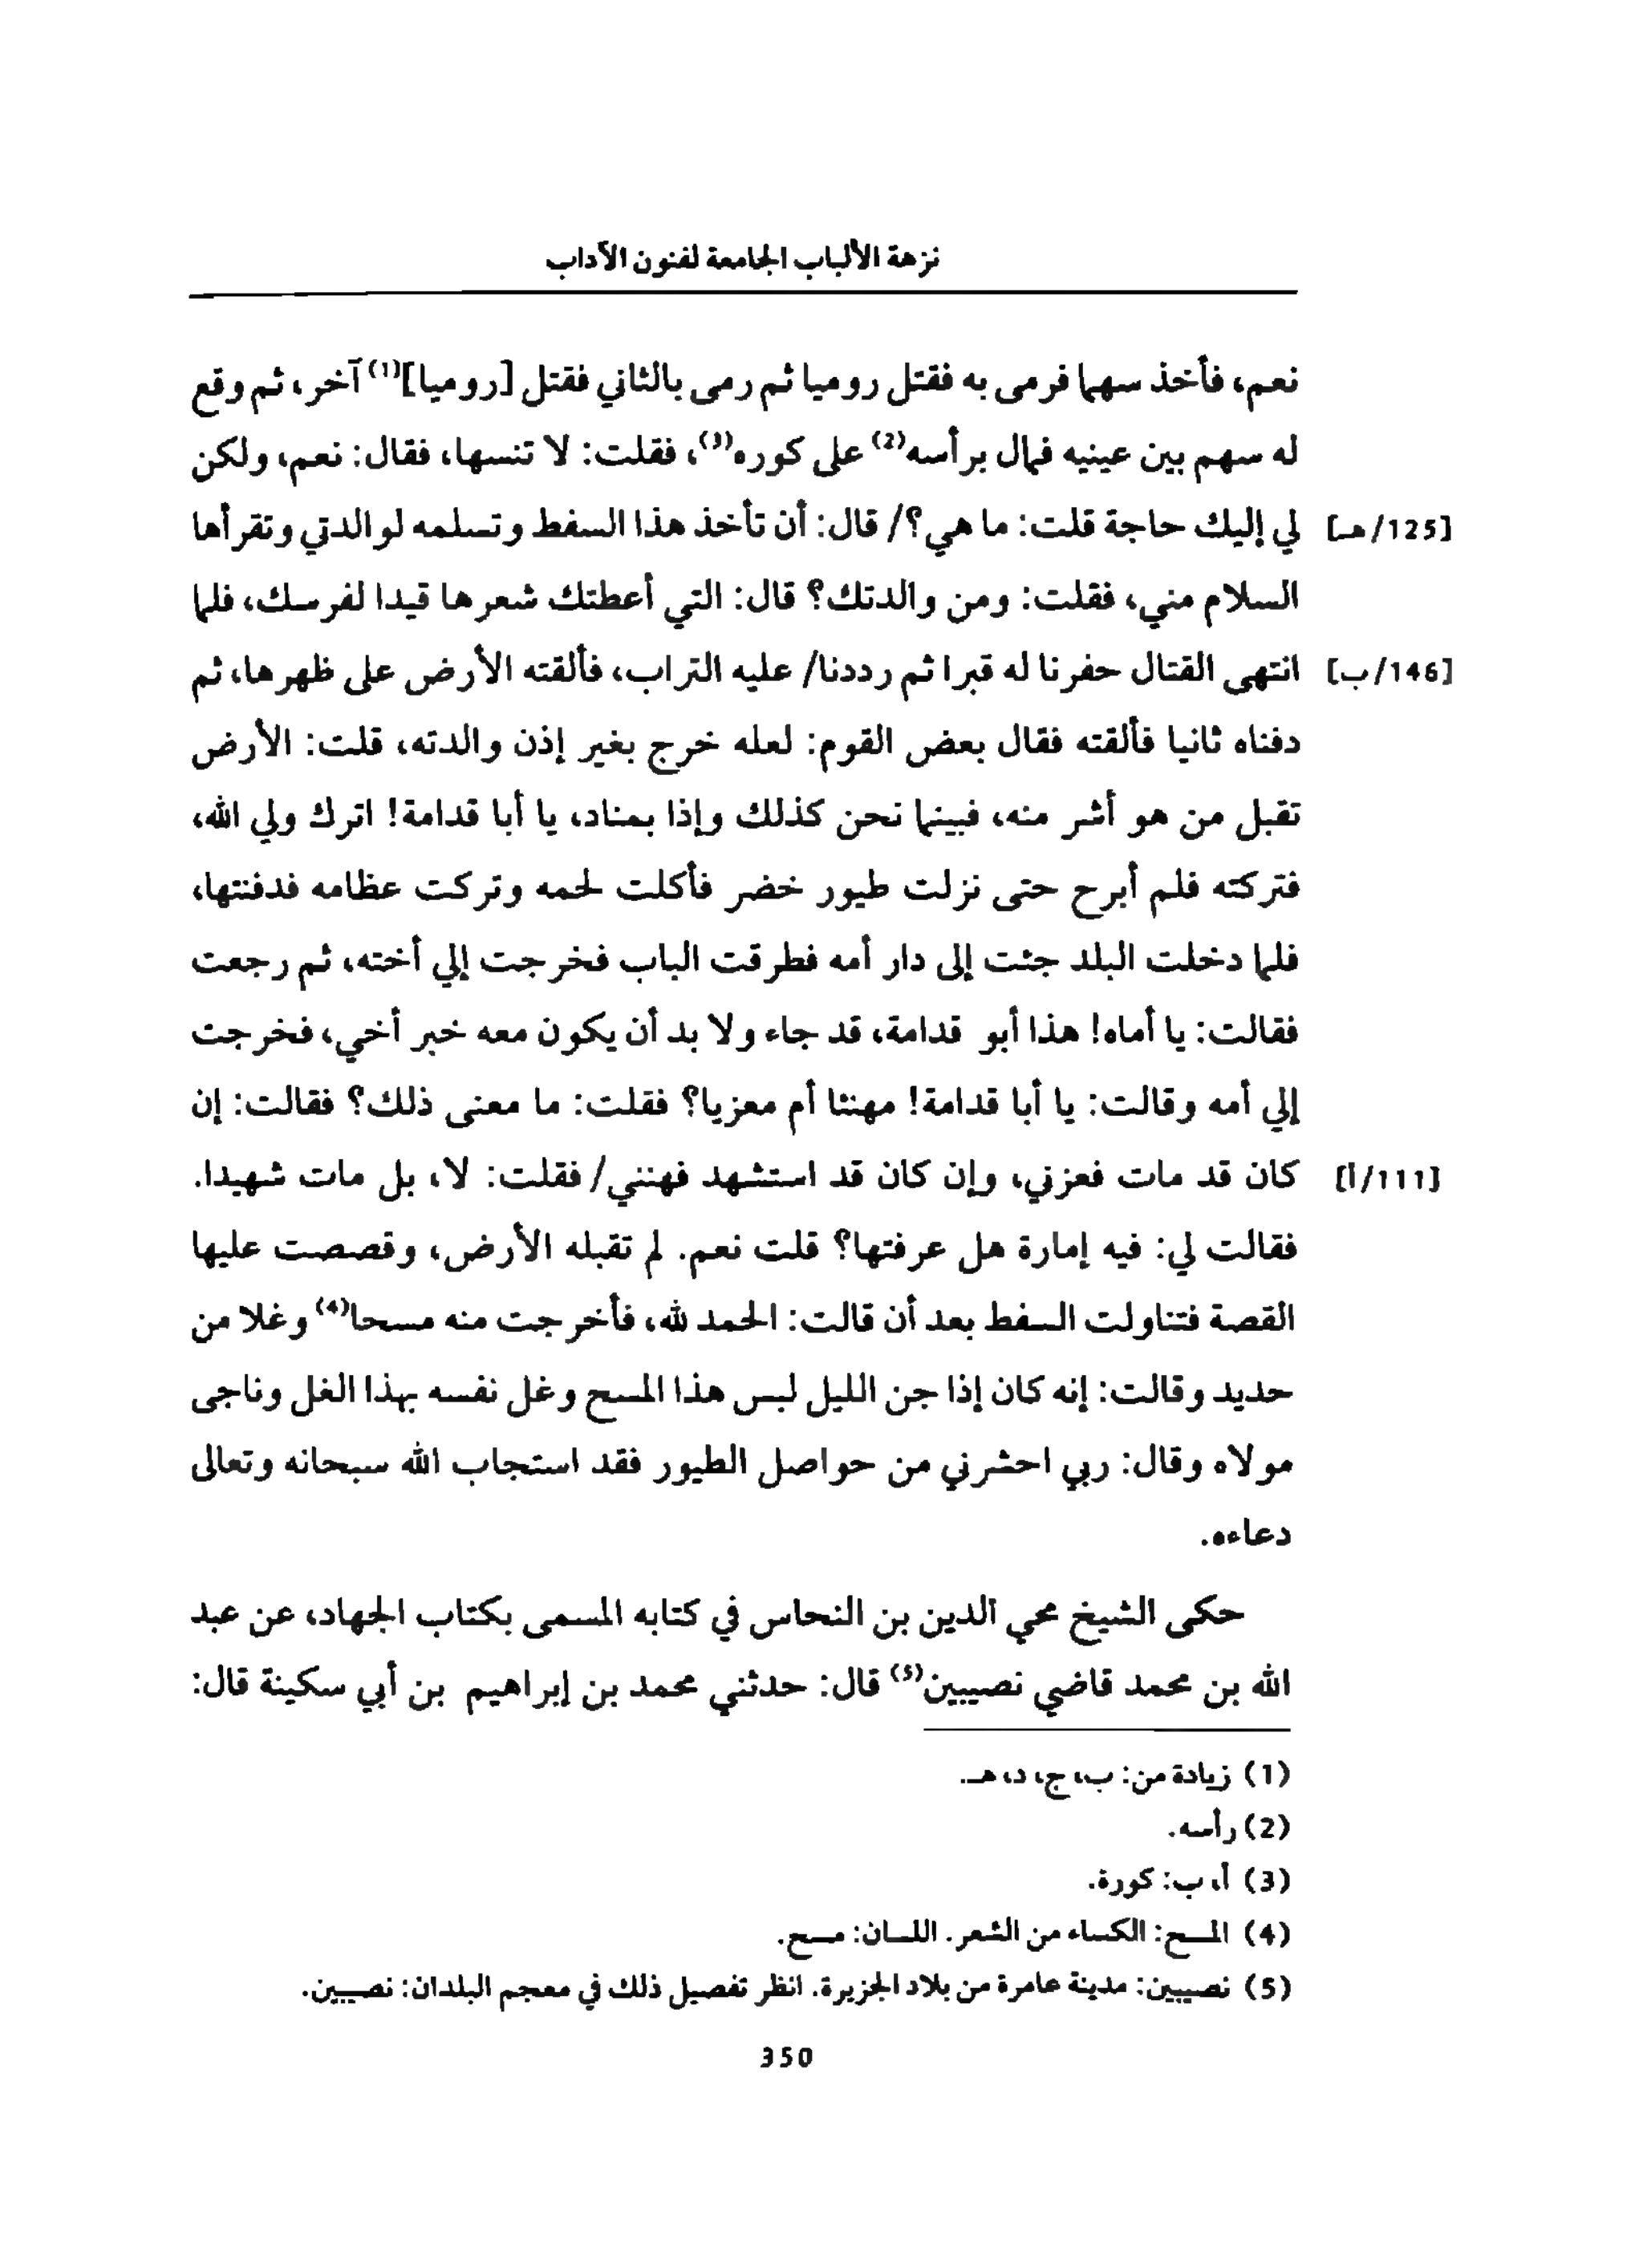 نزهة الألباب الجامعة لفنون الآداب
نعم، فأخذ سهما فرمى به فقتل روميا ثم رمى بالثاني فقتل [روميا](1) آخر، ثم وقع
له سهم بين عينيه فمال برأسه(2) على كوره(3)، فقلت: لا تنسها، فقال: نعم، ولكن
[125/هـ] لي إليك حاجة قلت: ما هي؟/ قال: أن تأخذ هذا السفط وتسلمه لوالدتي وتقرأها
السلام مني، فقلت: ومن والدتك؟ قال: التي أعطتك شعرها قيدا لفرسك، فلما
[146/ب] انتهى القتال حفرنا له قبرا ثم رددنا/ عليه التراب، فألقته الأرض على ظهرها، ثم
دفناه ثانيا فألقته فقال بعض القوم: لعله خرج بغير إذن والدته، قلت: الأرض
تقبل من هو أشر منه، فبينما نحن كذلك وإذا بمناد، يا أبا قدامة! اترك ولي الله،
فتركته فلم أبرح حتى نزلت طيور خضر فأكلت لحمه وتركت عظامه فدفنتها،
فلما دخلت البلد جئت إلى دار أمه فطرقت الباب فخرجت إلي أخته، ثم رجعت
فقالت: يا أماه! هذا أبو قدامة، قد جاء ولا بد أن يكون معه خبر أخي، فخرجت
إلي أمه وقالت: يا أبا قدامة! مهنئا أم معزيا؟ فقلت: ما معنى ذلك؟ فقالت: إن
[111/أ] كان قد مات فعزني، وإن كان قد استشهد فهنني/ فقلت: لا، بل مات شهيدا.
فقالت لي: فيه إمارة هل عرفتها؟ قلت نعم. لم تقبله الأرض، وقصصت عليها
القصة فتناولت السفط بعد أن قالت: الحمد لله، فأخرجت منه مسحا(4) وغلا من
حديد وقالت: إنه كان إذا جن الليل لبس هذا المسح وغل نفسه بهذا الغل وناجى
مولاه وقال: ربي احشرني من حواصل الطيور فقد استجاب الله سبحانه وتعالى
دعاءه.
حكى الشيخ محي الدين بن النحاس في كتابه المسمى بكتاب الجهاد، عن عبد
الله بن محمد قاضي نصيبين(5) قال: حدثني محمد بن إبراهيم بن أبي سكينة قال:
(1) زيادة من: ب، ج، د، هـ.
(2) رأسه.
(3) أ، ب: كورة.
(4) المسح: الكساء من الشعر. اللسان: مسح.
(5) نصيبين: مدينة عامرة من بلاد الجزيرة. انظر تفصيل ذلك في معجم البلدان: نصيبين.
350